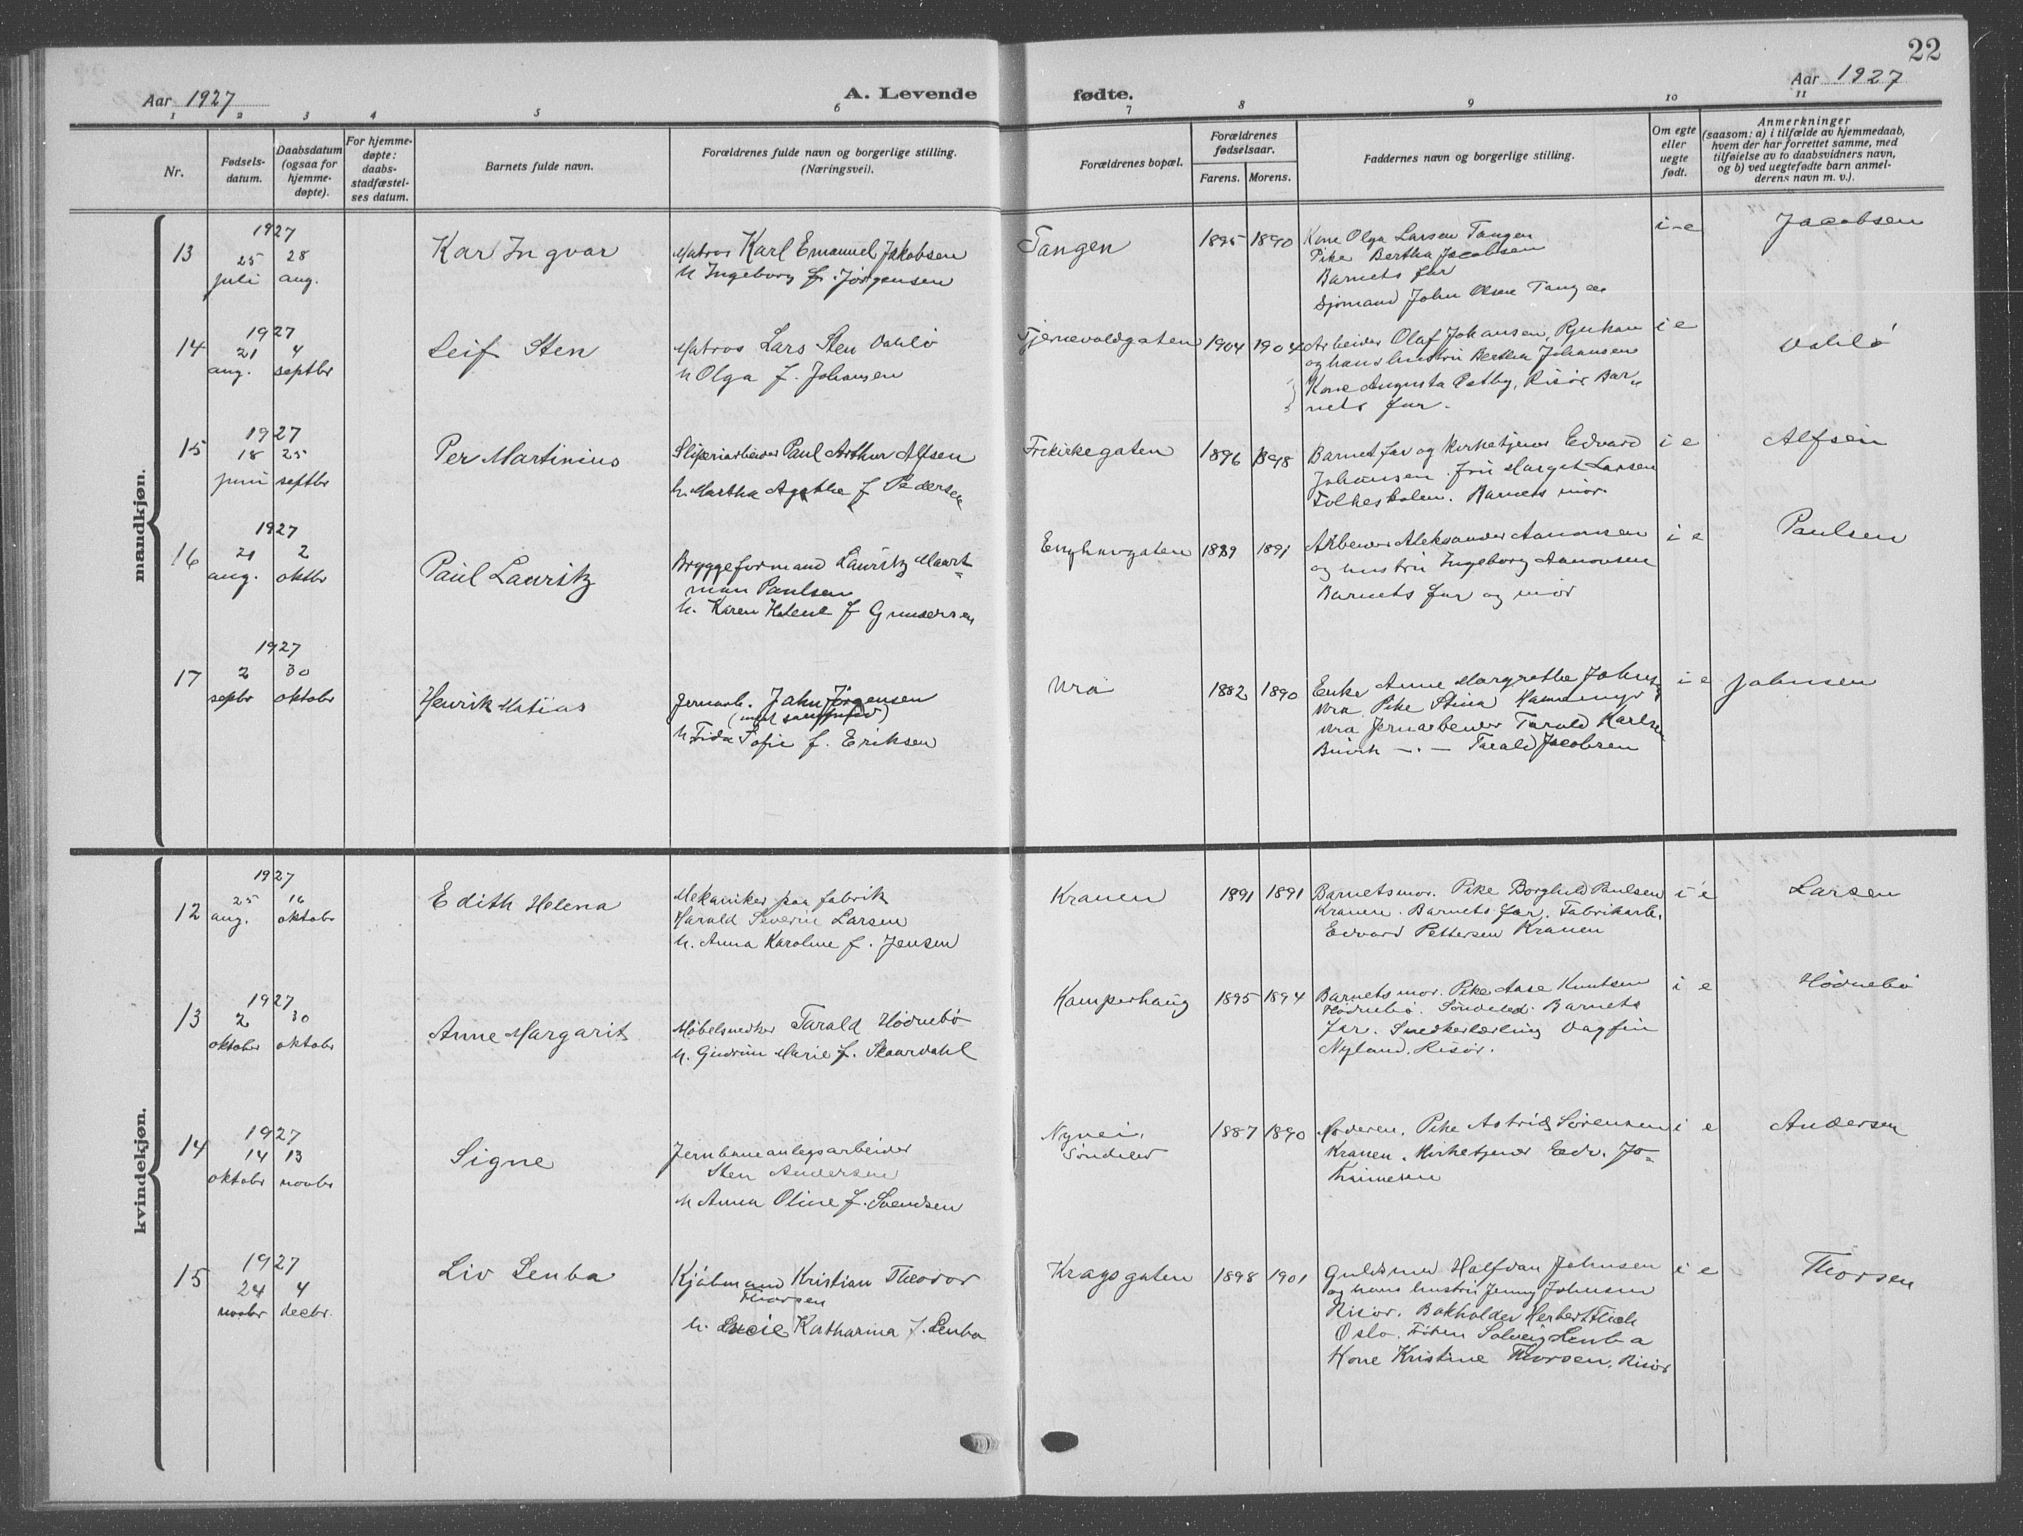 22
Aar 1927 A. Levende fødte. Aar 1927
1 2 3 4 5 6 7 8 9 10 11
Nr.
Fødsels-
datum.
Daabsdatum
(ogsaa for
hjemme-
døpte).
For hjemme-
døpte:
daabs-
stadfæstel-
ses datum.
Barnets fulde navn.
Forældrenes fulde navn og borgerlige stilling.
(Næringsvei).
Forældrenes bopæl.
Forældrenes
fødselsaar.
Farens. Morens.
Faddernes navn og borgerlige stilling.
Om egte
eller
uegte
født.
Anmerkninger
(saasom: a) i tilfælde av hjemmedaab,
hvem der har forrettet samme, med
tilføielse av to daabsvidners navn,
og b) ved uegtefødte barn anmel-
derens navn m. v.).
mandkjøn.
13
1927
25 28
juli aug.
Kar Ingvar
Matros Karl Emanuel Jakobsen
u Ingeborg f. Jörgensen
Tangen
1895 1890
Kone Olga Larsen Tangen
Pike Bertha Jacobsen
Barnets far
Sjömand John Olsen Tangen
i-e
Jacobsen
14
1927
21 4
aug. septbr
Leif Sten
Matros Lars Sten Dahlö
u Olga f. Johansen
Tjernevoldgaten
1904 1904
Arbeider Olaf Johansen, Rjukan
og hans hustru Bertha Johansen
Kone Augusta Østby, Risör Bar-
nets far.
i e
Dahlö
15
1927
18 25
juni septbr
Per Martinius
Sliperiarbeider Paul Arthur Alfsen
u. Martha Agathe f Pedersen
Frikirkegaten
1896 1898
Barnets far og kirketjener Edvard
Johansen. Frü Margit Larsen
Folkeskolen. Barnets mor.
i e
Alfsen
16
1927
21 2
aug. oktbr
Paul Lauritz
Bryggeformand Lauritz Mart-
man Paulsen
u. Karen Helene f Gundersen
Enghavgaten
1889 1891
Arbeider Aleksander Aanonsen
og hustru Ingeborg Aanonsen
Barnets far og mor
i e
Paulsen
17
1927
2 30
septbr oktobr
Henrik Matias
Jernarb. Jahn Jörgensen
u Frida Sofie f. Eriksen
Vra
1882 1890
Enke Anne Margrethe Johnsen
Vra Pike Stina Hammemyr
Vra Jernarbeider Tarald Karlsen
Buvik -.- Tarald Jacobsen
i e
Johnsen
kvindekjøn.
12
1927
25 16
aug. oktobr
Edith Helena
Mekaniker paa fabrik
Harald Severin Larsen
u. Anna Karoline f. Jensen
Kranen
1891 1891
Barnets mor. Pike Borghild Paulsen
Kranen. Barnets far. Fabrikarb.
Edvard Pettersen Kranen
i e
Larsen
13
1927
2 30
oktober oktobr
Anne Margarit
Möbelsnedker Tarald Hödnebö
u. Gudrun Marie f. Skaardahl
Kamperhaug
1895 1894
Barnets mor. Pike Aase Knutsen
Hödnebö. Söndeled. Barnets
far. Snedkerlærling Dagfin
Nyland. Risör.
i e
Hödnebö
14
1927
14 13
oktobr novbr
Signe
Jernbaneanlegsarbeider
Sten Andersen
u Anna Oline f. Svendsen
Nyvei,
Söndeled
1887 1890
Moderen. Pike Astrid Sörensen
Kranen. Kirketjener Edv. Jo-
hannesen
i e
Andersen
15
1927
24 4
novbr decbr.
Liv Lenba
Kjöbmand Kristian Theodor
Thorsen
u. Lucie Katharina f. Lenba
Kragsgaten
1898 1901
Guldsmed Halfdan Johnsen
og hans hustru Jenny Johnsen
Risör. Bokholder Herbert
Oslo. Fröken Solveig Lenba
Kone Kristine Thorsen, Risör
i e
Thorsen